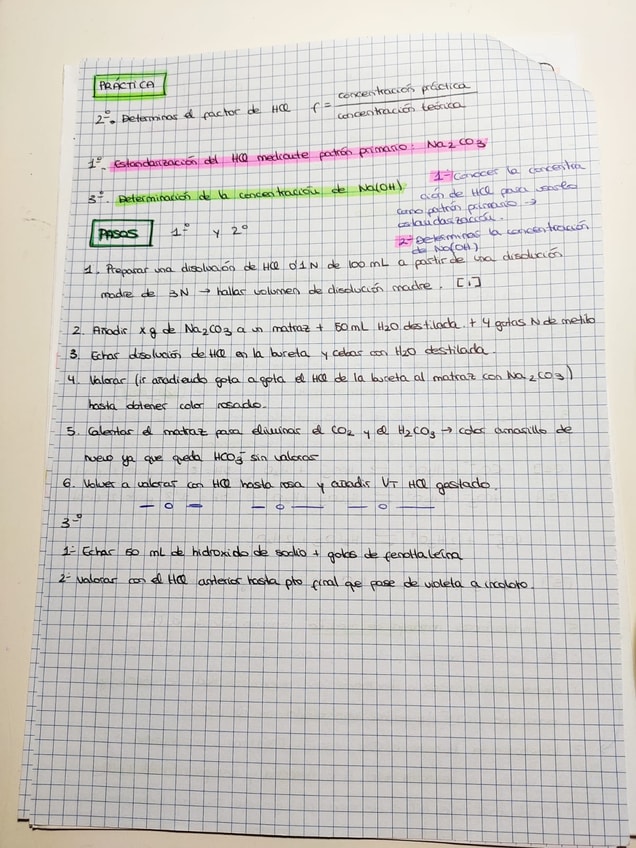 PRÁCTICA
2º. Determinas el factor de HCl f = concentración práctica / concentración teórica
1º. Estandarización del HCl mediante patrón primario: Na2CO3
3º. Determinación de la concentración de Na(OH)
1- Conocer la concentra
ción de HCl para usarlo
como patrón primario →
estandarización.
2- Determinas la concentración
de Na(OH)
PASOS 1º y 2º
1. Preparar una disolución de HCl 0'1 N de 100 mL a partir de una disolución
madre de 3N → hallar volumen de disolución madre. [1]
2. Añadir x g de Na2CO3 a un matraz + 50 mL H2O destilada + 4 gotas N de metilo
3. Echar disolución de HCl en la bureta y cebar con H2O destilada.
4. Valorar (ir añadiendo gota a gota el HCl de la bureta al matraz con Na2CO3)
hasta obtener color rosado.
5. Calentar el matraz para eliminar el CO2 y el H2CO3 → color amarillo de
nuevo ya que queda HCO3- sin valorar
6. Volver a valorar con HCl hasta rosa y añadir VT HCl gastado.
3º
1- Echar 50 mL de hidroxido de sodio + gotas de fenoftaleina
2- Valorar con el HCl anterior hasta pto final que pase de violeta a incoloro.